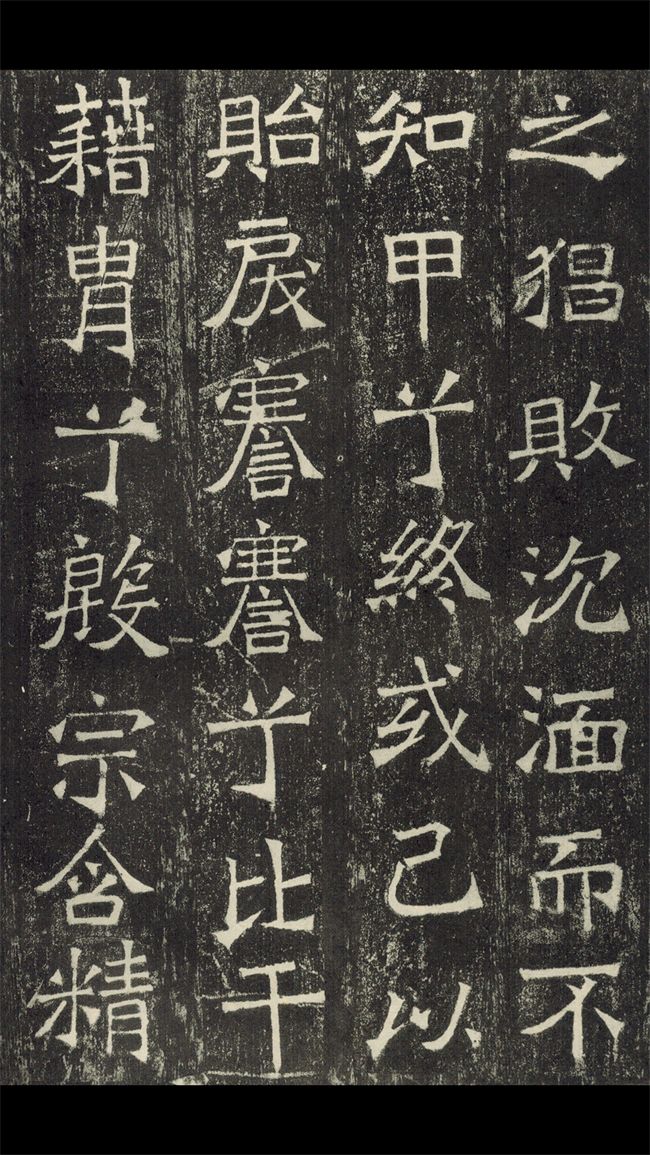 之猖敗沉湎而不
知甲兮終或己以
貽戾謇謇兮比干
藉胄兮殷宗含精